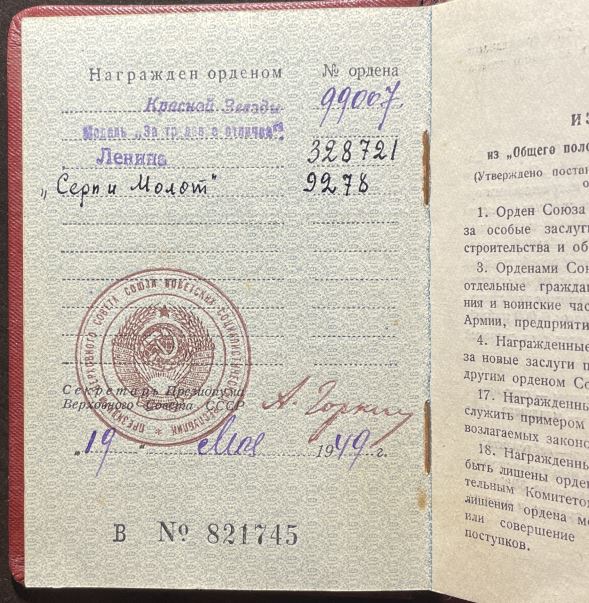 Награжден орденом № ордена
Красной Звезды 99007
Медаль „За тр. дов. отличие"
Ленина 328721
„Серп и Молот" 9278
Секретарь Президиума
Верховного Совета СССР А. Горкин
„19" Мая 1949 г.
В № 821745
ВЕРХОВНОГО СОВЕТА СОЮЗА СОВЕТСКИХ СОЦИАЛИСТИЧЕСКИХ РЕСПУБЛИК
ИЗ
из „Общего поло
(Утверждено постан
о
1. Орден Союза
за особые заслуги
строительства и об
3. Орденами Сою
отдельные гражда
ния и воинские час
Армии, предприяти
4. Награжденные
за новые заслуги п
другим орденом Со
17. Награжденны
служить примером
возлагаемых законо
18. Награжденны
быть лишены орде
тельным Комитетом
лишения ордена мо
или совершение
поступков.